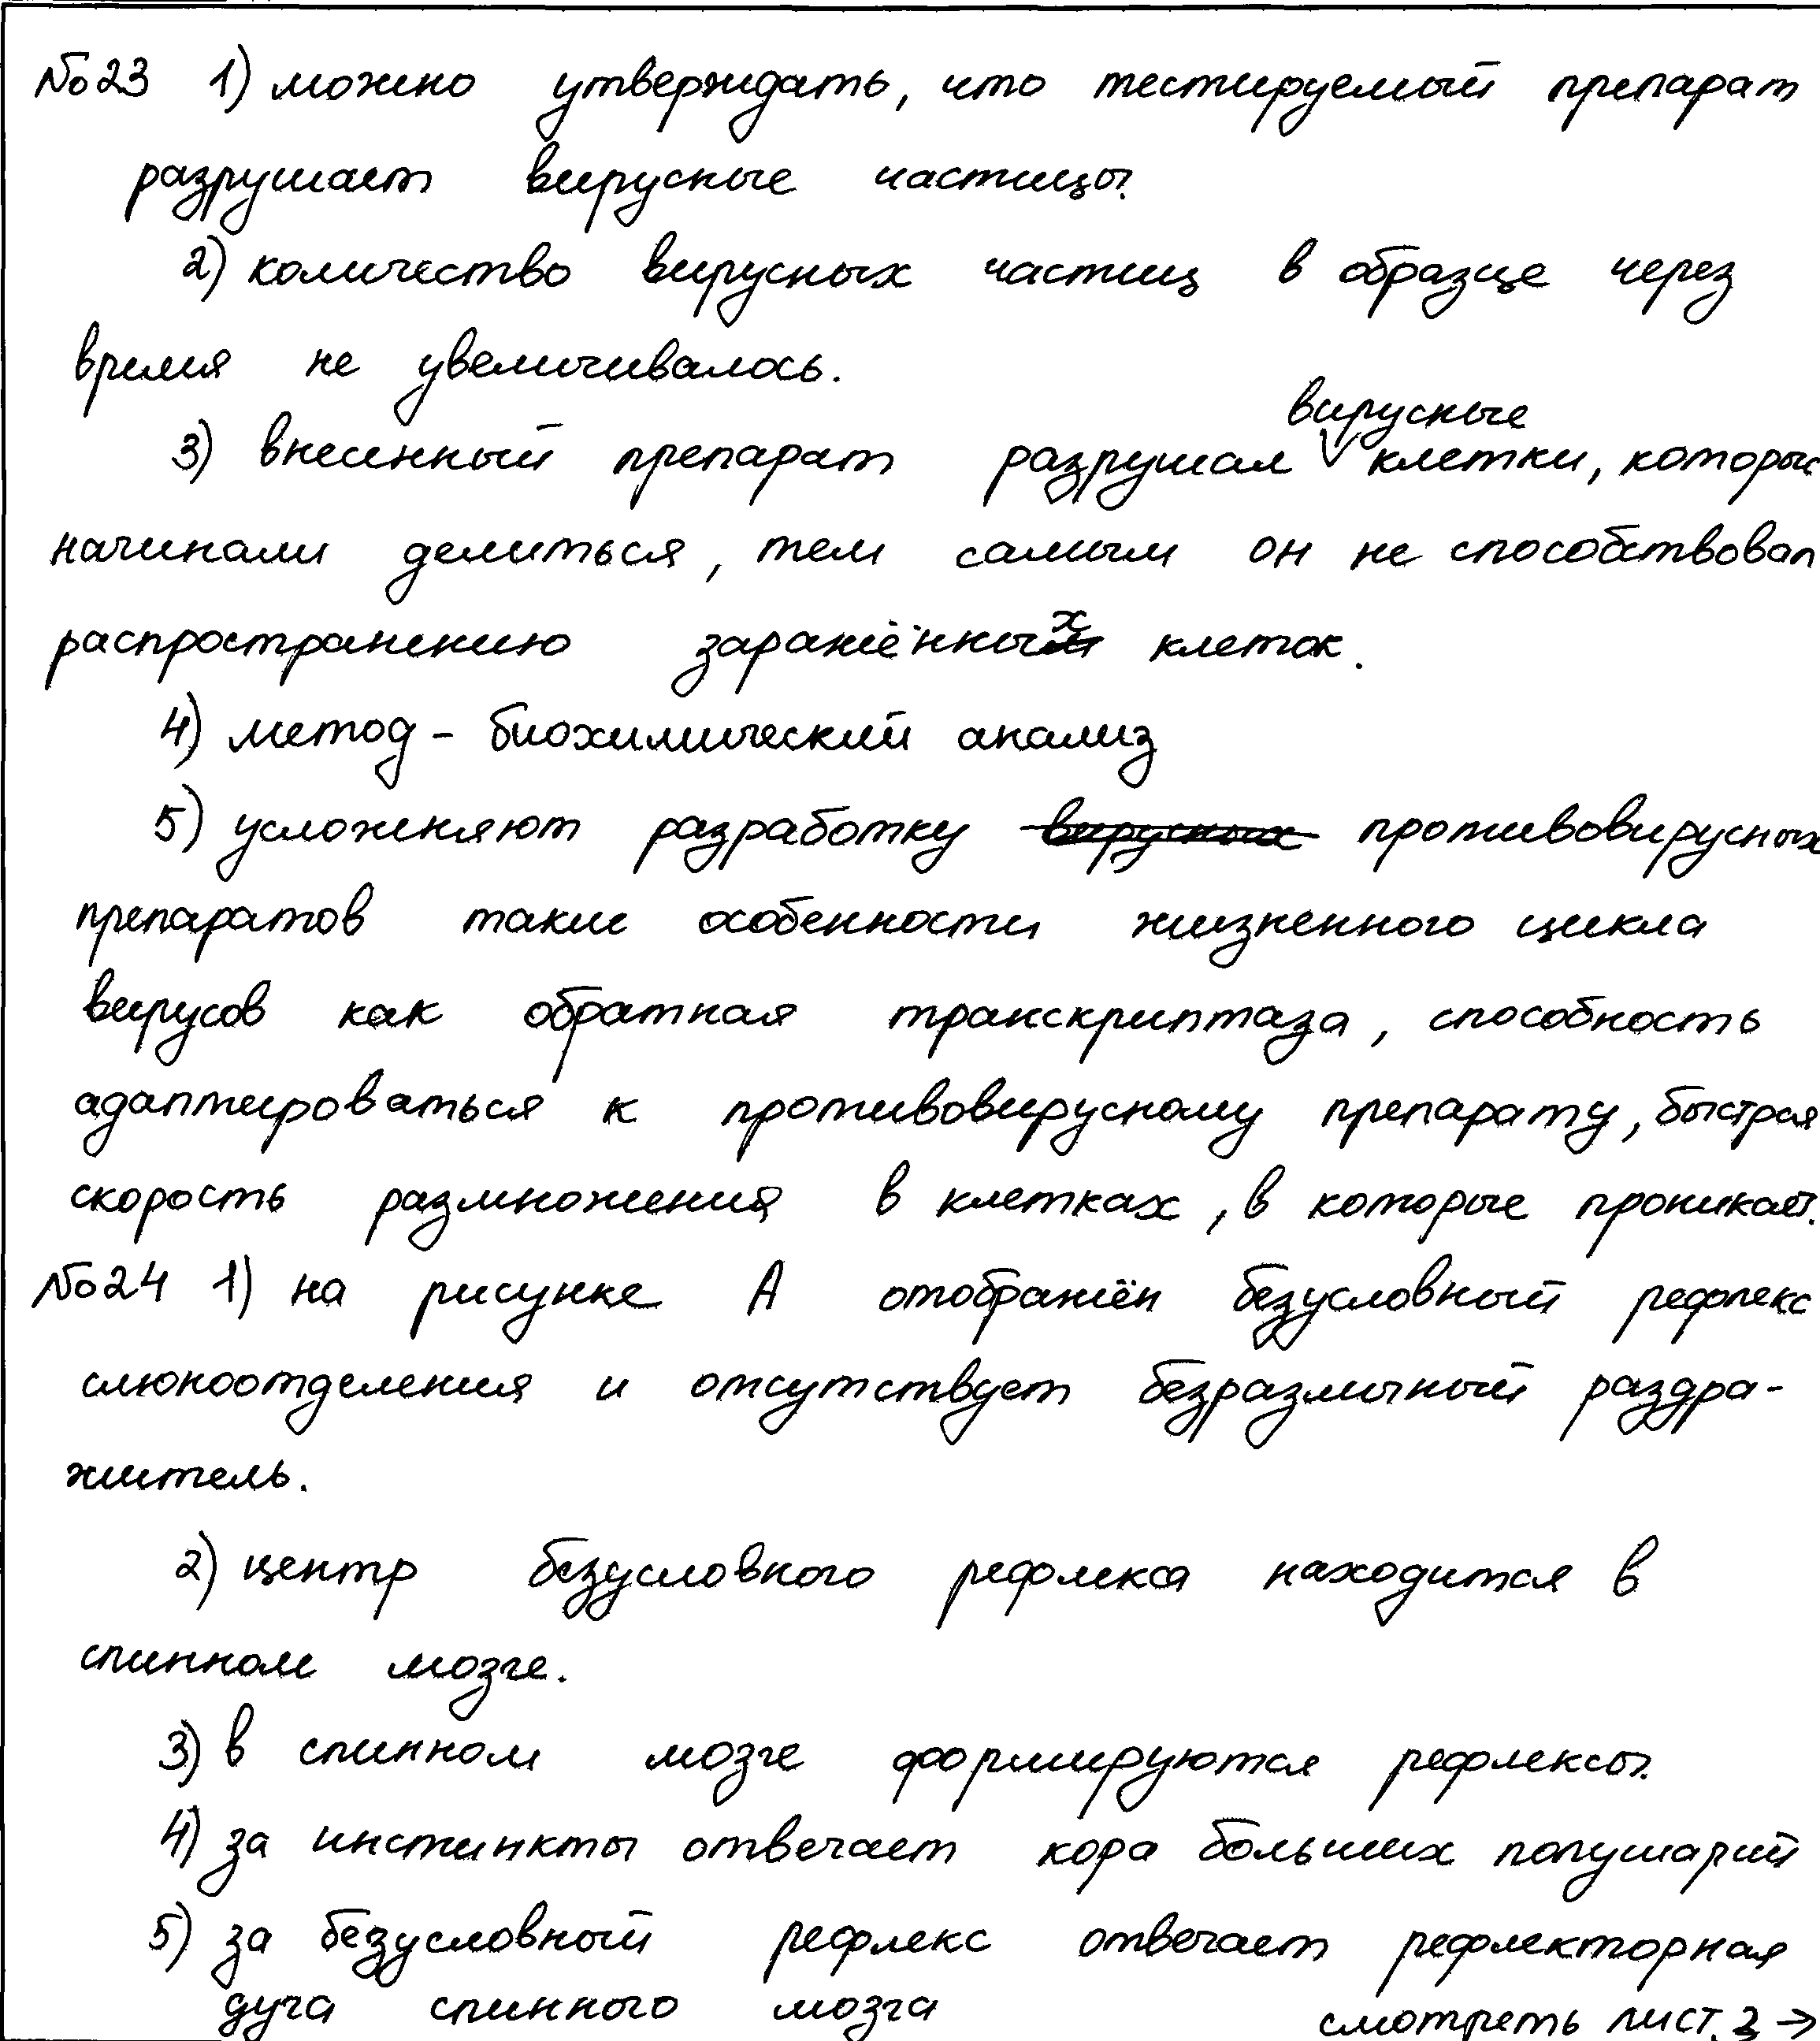 №23 1) можно утверждать, что тестируемый препарат
разрушает вирусные частицы.
2) количество вирусных частиц в образце через
время не увеличивалось.
вирусные
3) внесенный препарат разрушал клетки, которые
начинали делиться, тем самым он не способствовал
распространению заражённых клеток.
4) метод - биохимический анализ
5) усложняют разработку вирусных противовирусных
препаратов такие особенности жизненного цикла
вирусов как обратная транскриптаза, способность
адаптироваться к противовирусному препарату, быстрая
скорость размножения в клетках, в которые проникает.
№24 1) на рисунке А отображён безусловный рефлекс
слюноотделения и отсутствует безразличный раздра-
житель.
2) центр безусловного рефлекса находится в
спинном мозге.
3) в спинном мозге формируются рефлексы.
4) за инстинкты отвечает кора больших полушарий
5) за безусловный рефлекс отвечает рефлекторная
дуга спинного мозга
смотреть лист 2 →